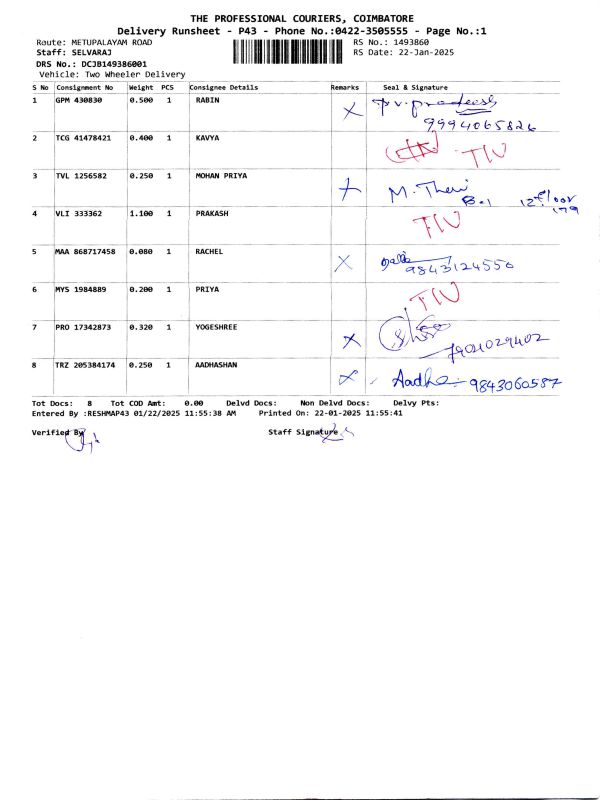 THE PROFESSIONAL COURIERS, COIMBATORE
Delivery Runsheet - P43 - Phone No.:0422-3505555 - Page No.:1
Route: METUPALAYAM ROAD RS No.: 1493860
Staff: SELVARAJ RS Date: 22-Jan-2025
DRS No.: DCJB149386001
Vehicle: Two Wheeler Delivery
S No Consignment No Weight PCS Consignee Details Remarks Seal & Signature
1 GPM 430830 0.500 1 RABIN X
9994065826
2 TCG 41478421 0.400 1 KAVYA TIV
3 TVL 1256582 0.250 1 MOHAN PRIYA X M. Theri
B-1 12 floor
179
4 VLI 333362 1.100 1 PRAKASH TIV
5 MAA 868717458 0.080 1 RACHEL X
9843124550
6 MYS 1984889 0.200 1 PRIYA TIV
7 PRO 17342873 0.320 1 YOGESHREE X
7904029402
8 TRZ 205384174 0.250 1 AADHASHAN X Aadha 9843060587
Tot Docs: 8 Tot COD Amt: 0.00 Delvd Docs: Non Delvd Docs: Delvy Pts:
Entered By :RESHMAP43 01/22/2025 11:55:38 AM Printed On: 22-01-2025 11:55:41
Verified By Staff Signature